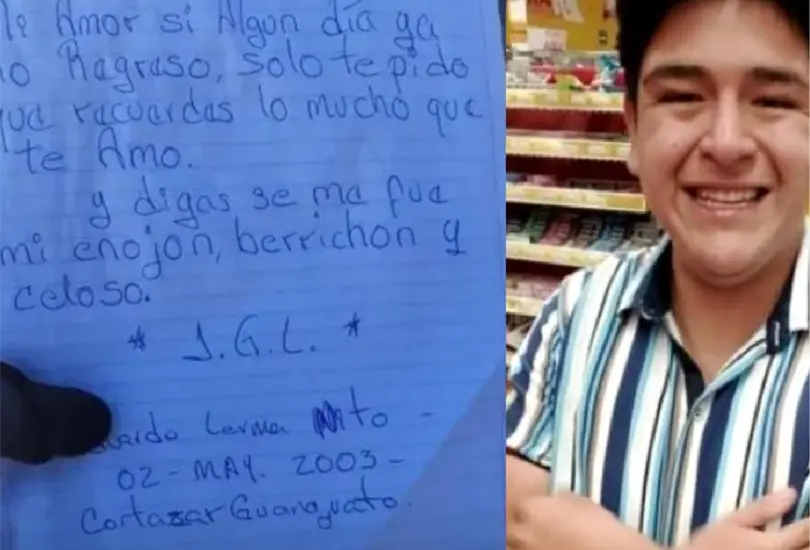 Amor si Algun día ya
Ragraso, solo te pido
que racuardas lo mucho que
te Amo.
y digas se ma fua
mi enojon, berrichon y
celoso.
* J.G.L. *
Lerma
02 - MAY. 2003 -
Cortazar Guanajuato.